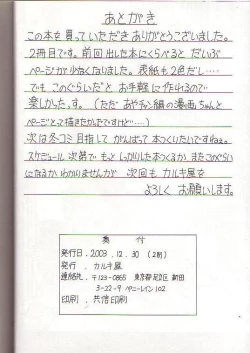 あとがき
この本を買っていただきありがとうございました。
2冊目です。前回出した本にくらべると だいぶ
ページが少なくなりました。表紙も2色だし‥‥
でも このぐらいだと お手軽に作れるので
楽しかったす。(ただ おやチン編の漫画ちゃんと
ページとって描きたかったですけど‥‥)
次は冬コミ目指して がんばって 本つくりたいですねぇ。
スケジュール次第で もっとしっかりした本つくるか またこのぐらい
になるか わかりませんが 次回も カルキ屋を
よろしく お願いします。
奥 付
発行日 . 2009 . 12 . 30 (2刷)
発行 . カルキ屋
連絡先 . 〒123-0865 東京都足立区新田
3-22-9 ペニーレイン102
印刷 . 共信印刷